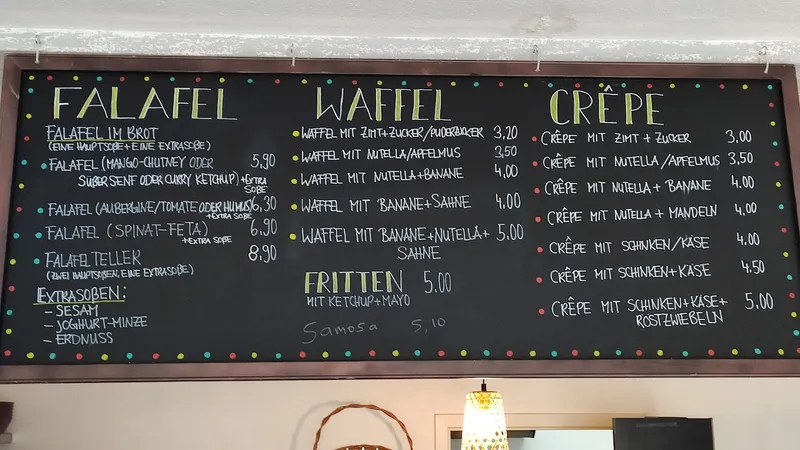 FALAFEL
FALAFEL IM BROT
(EINE HAUPTSOßE + EINE EXTRASOßE)
FALAFEL (MANGO-CHUTNEY ODER 5,90
SÜßER SENF ODER CURRY KETCHUP) +EXTRA SOßE
FALAFEL (AUBERGINE/TOMATE ODER HUMUS) 6,30
+EXTRA SOßE
FALAFEL (SPINAT-FETA) 6,90
+EXTRA SOßE
FALAFELTELLER 8,90
(ZWEI HAUPTSOßEN, EINE EXTRASOßE)
EXTRASOßEN:
- SESAM
- JOGHURT-MINZE
- ERDNUSS
WAFFEL
WAFFEL MIT ZIMT+ZUCKER/PUDERZUCKER 3,20
WAFFEL MIT NUTELLA/APFELMUS 3,50
WAFFEL MIT NUTELLA+BANANE 4,00
WAFFEL MIT BANANE+SAHNE 4,00
WAFFEL MIT BANANE+NUTELLA+ 5,00
SAHNE
FRITTEN 5,00
MIT KETCHUP+MAYO
Samosa 5,10
CRÊPE
CRÊPE MIT ZIMT+ZUCKER 3,00
CRÊPE MIT NUTELLA/APFELMUS 3,50
CRÊPE MIT NUTELLA+ BANANE 4,00
CRÊPE MIT NUTELLA + MANDELN 4,00
CRÊPE MIT SCHINKEN/KÄSE 4,00
CRÊPE MIT SCHINKEN+KÄSE 4,50
CRÊPE MIT SCHINKEN+KÄSE+ 5,00
RÖSTZWIEBELN